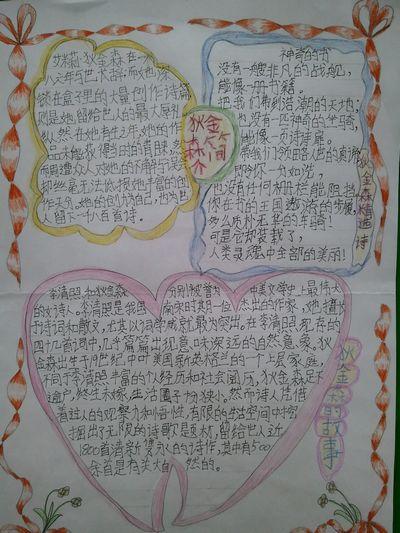 艾米莉·狄金森在一八
六年与世长辞,而她深
锁在盒子里的大量创作诗篇
则是她留给世人的最大犀礼
纵然在她有生之年,她的作
品未能获得当时的青睐,
而周遭众人对她的不解与误
却丝毫无法低损她丰富的创
作天分。
留下一千八百首诗。
狄金森
简介
神奇的书
没有一艘非凡的战舰,
能像一册书籍。
把我们带到浩瀚的天地;
也没有一匹神奇的坐骑,
能像一页诗扉。
带我们领略人世的真谛
即令你一如洗,
也没有任何栅栏能阻挡
你在书的王国遨游的步履,
多么质朴无华的车骑!
可是它却装载了,
人类灵魂中全部的美丽!
狄金森精选诗
李清照和狄金森 分别被誉为 中美文学史上最伟大
的女诗人。李清照是我国 南宋时期一位 杰出的作家,她擅长
于诗词和散文,尤其以词学成就最为突出。在李清照现存的
四十几首词中,几乎篇篇出现意味深远的自然意象。狄
金森出生于19世纪中叶美国新英格兰的一个上层家庭,
不同于李清照丰富的个人经历和社会阅历,狄金森足不
逾户,终生未嫁,生活圈子十分狭小,然而诗人凭借
着过人的观察力和悟性,有限的生活空间中挖
掘出了无限的诗歌题材,留给世人近
1800首清新隽永的诗作,其中有500
余首是有关大自 然的。
狄金森的故事